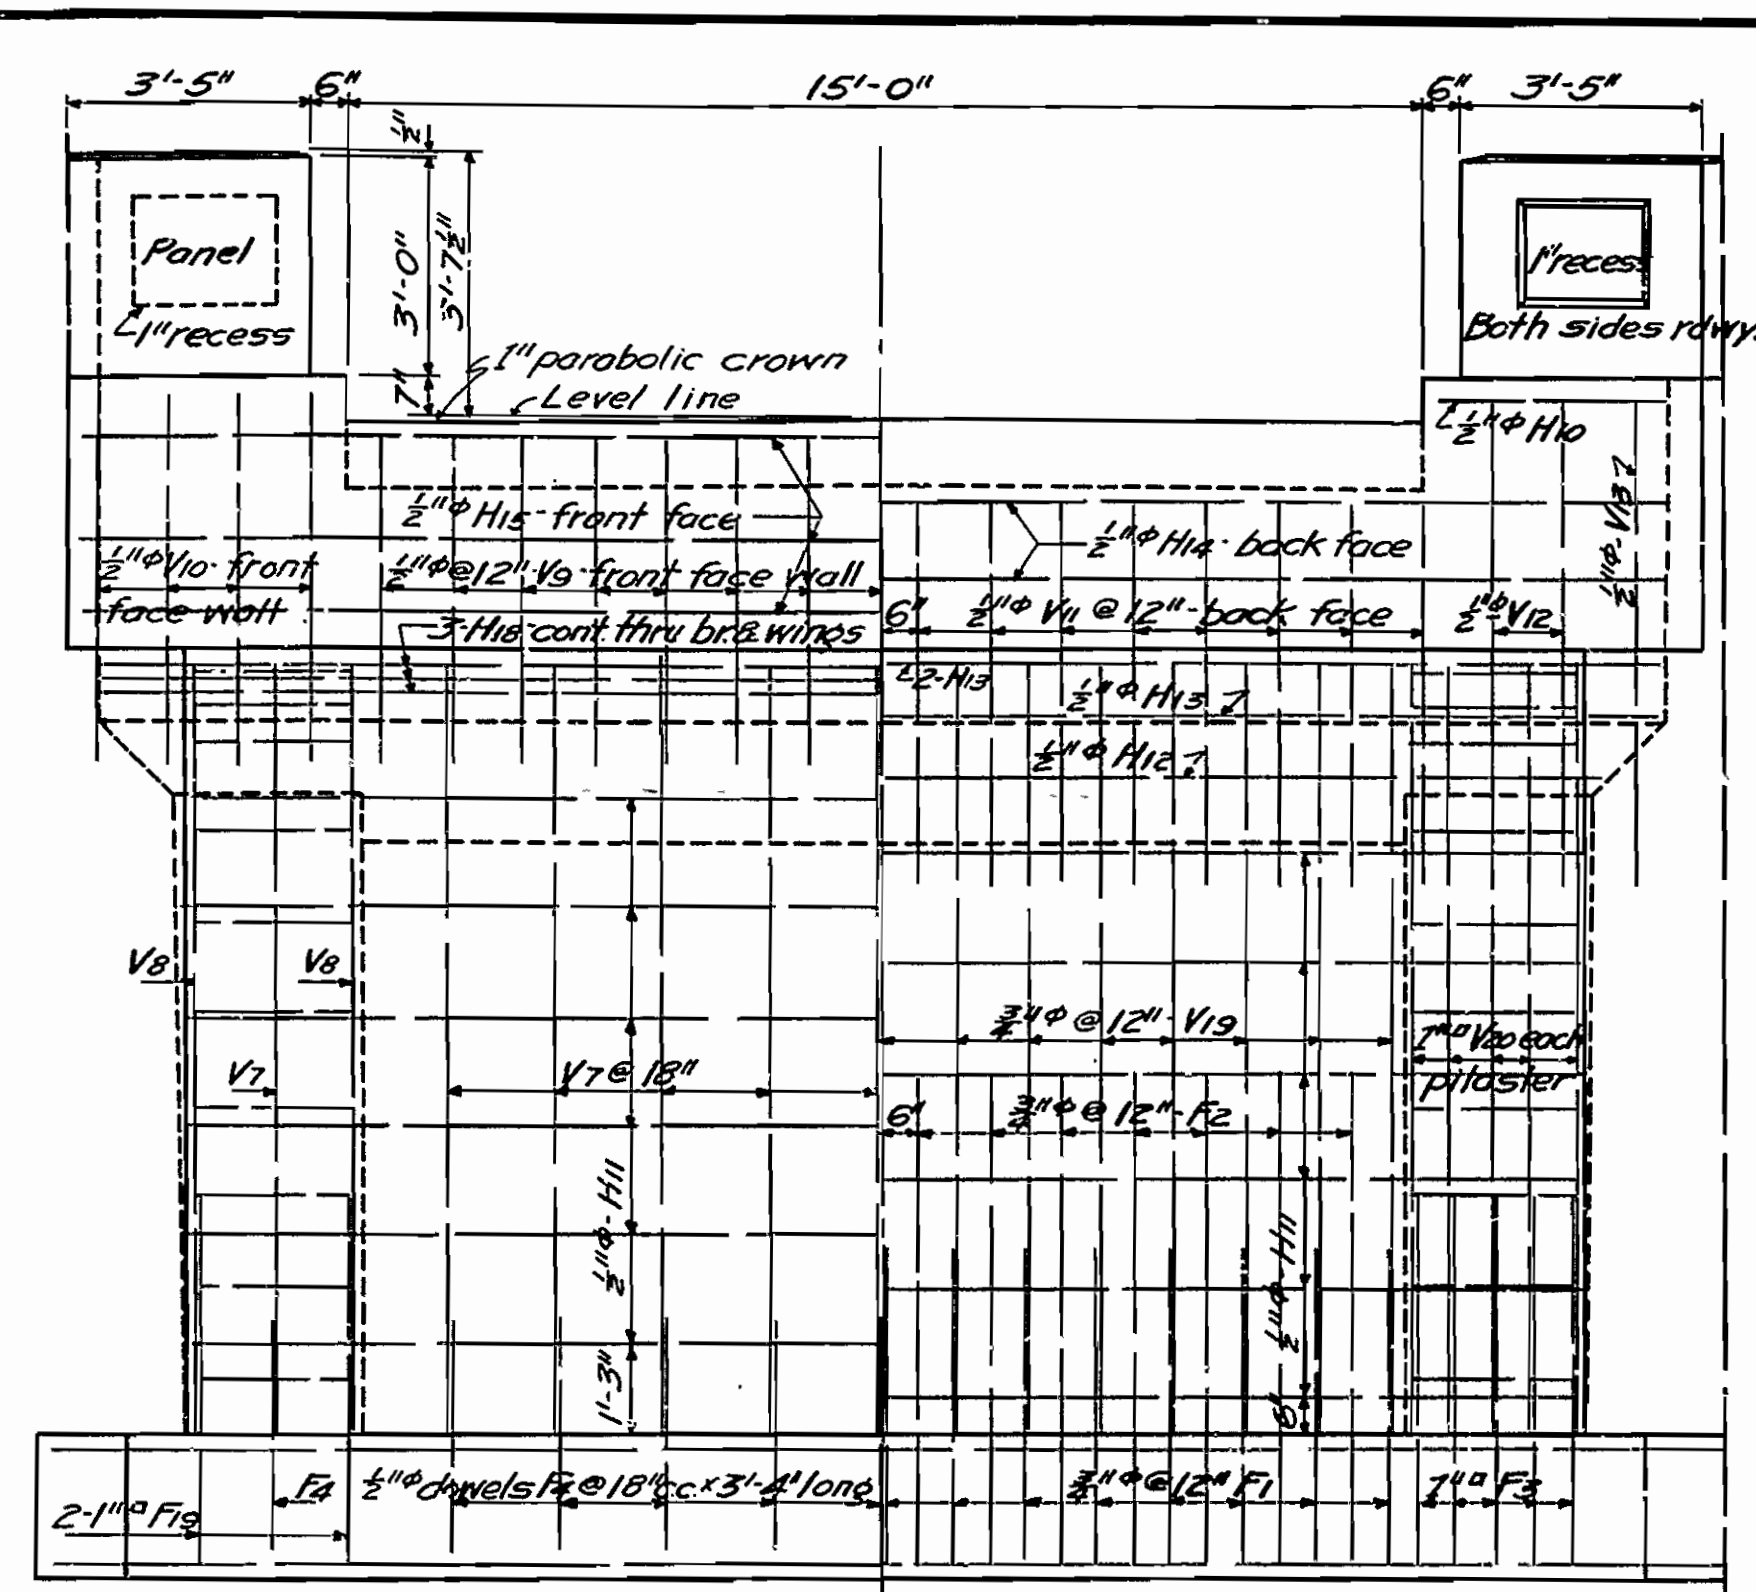 3'-5" 6" 15'-0" 6" 3'-5"
1/2"
3'-0"
3'-7 1/2"
7"
Panel
1" recess
1" recess
Both sides rdwy.
1" parabolic crown
Level line
1/2"ϕ H10
1/2"ϕ-V13
1/2"ϕ H15-front face
1/2"ϕ H14-back face
1/2"ϕ V10-front
face wall
1/2"ϕ@12"-V9-front face wall
3-H18-cont. thru br.& wings
6" 1/2"ϕ V11 @ 12"-back face
1/2"ϕ V12
2-H13
1/2"ϕ H13
1/2"ϕ H12
V8 V8
3/4"ϕ @ 12"-V19
1"□ V20 each
pilaster
V7 V7 @ 18"
6" 3/4"ϕ @ 12"-F2
1/2"ϕ-H11
1/2"ϕ-H11
1'-3"
6"
F4 1/2"ϕ dowels F4 @ 18"cc.x3'-4" long
3/4"ϕ @ 12" F1
1"□ F3
2-1"□ F19